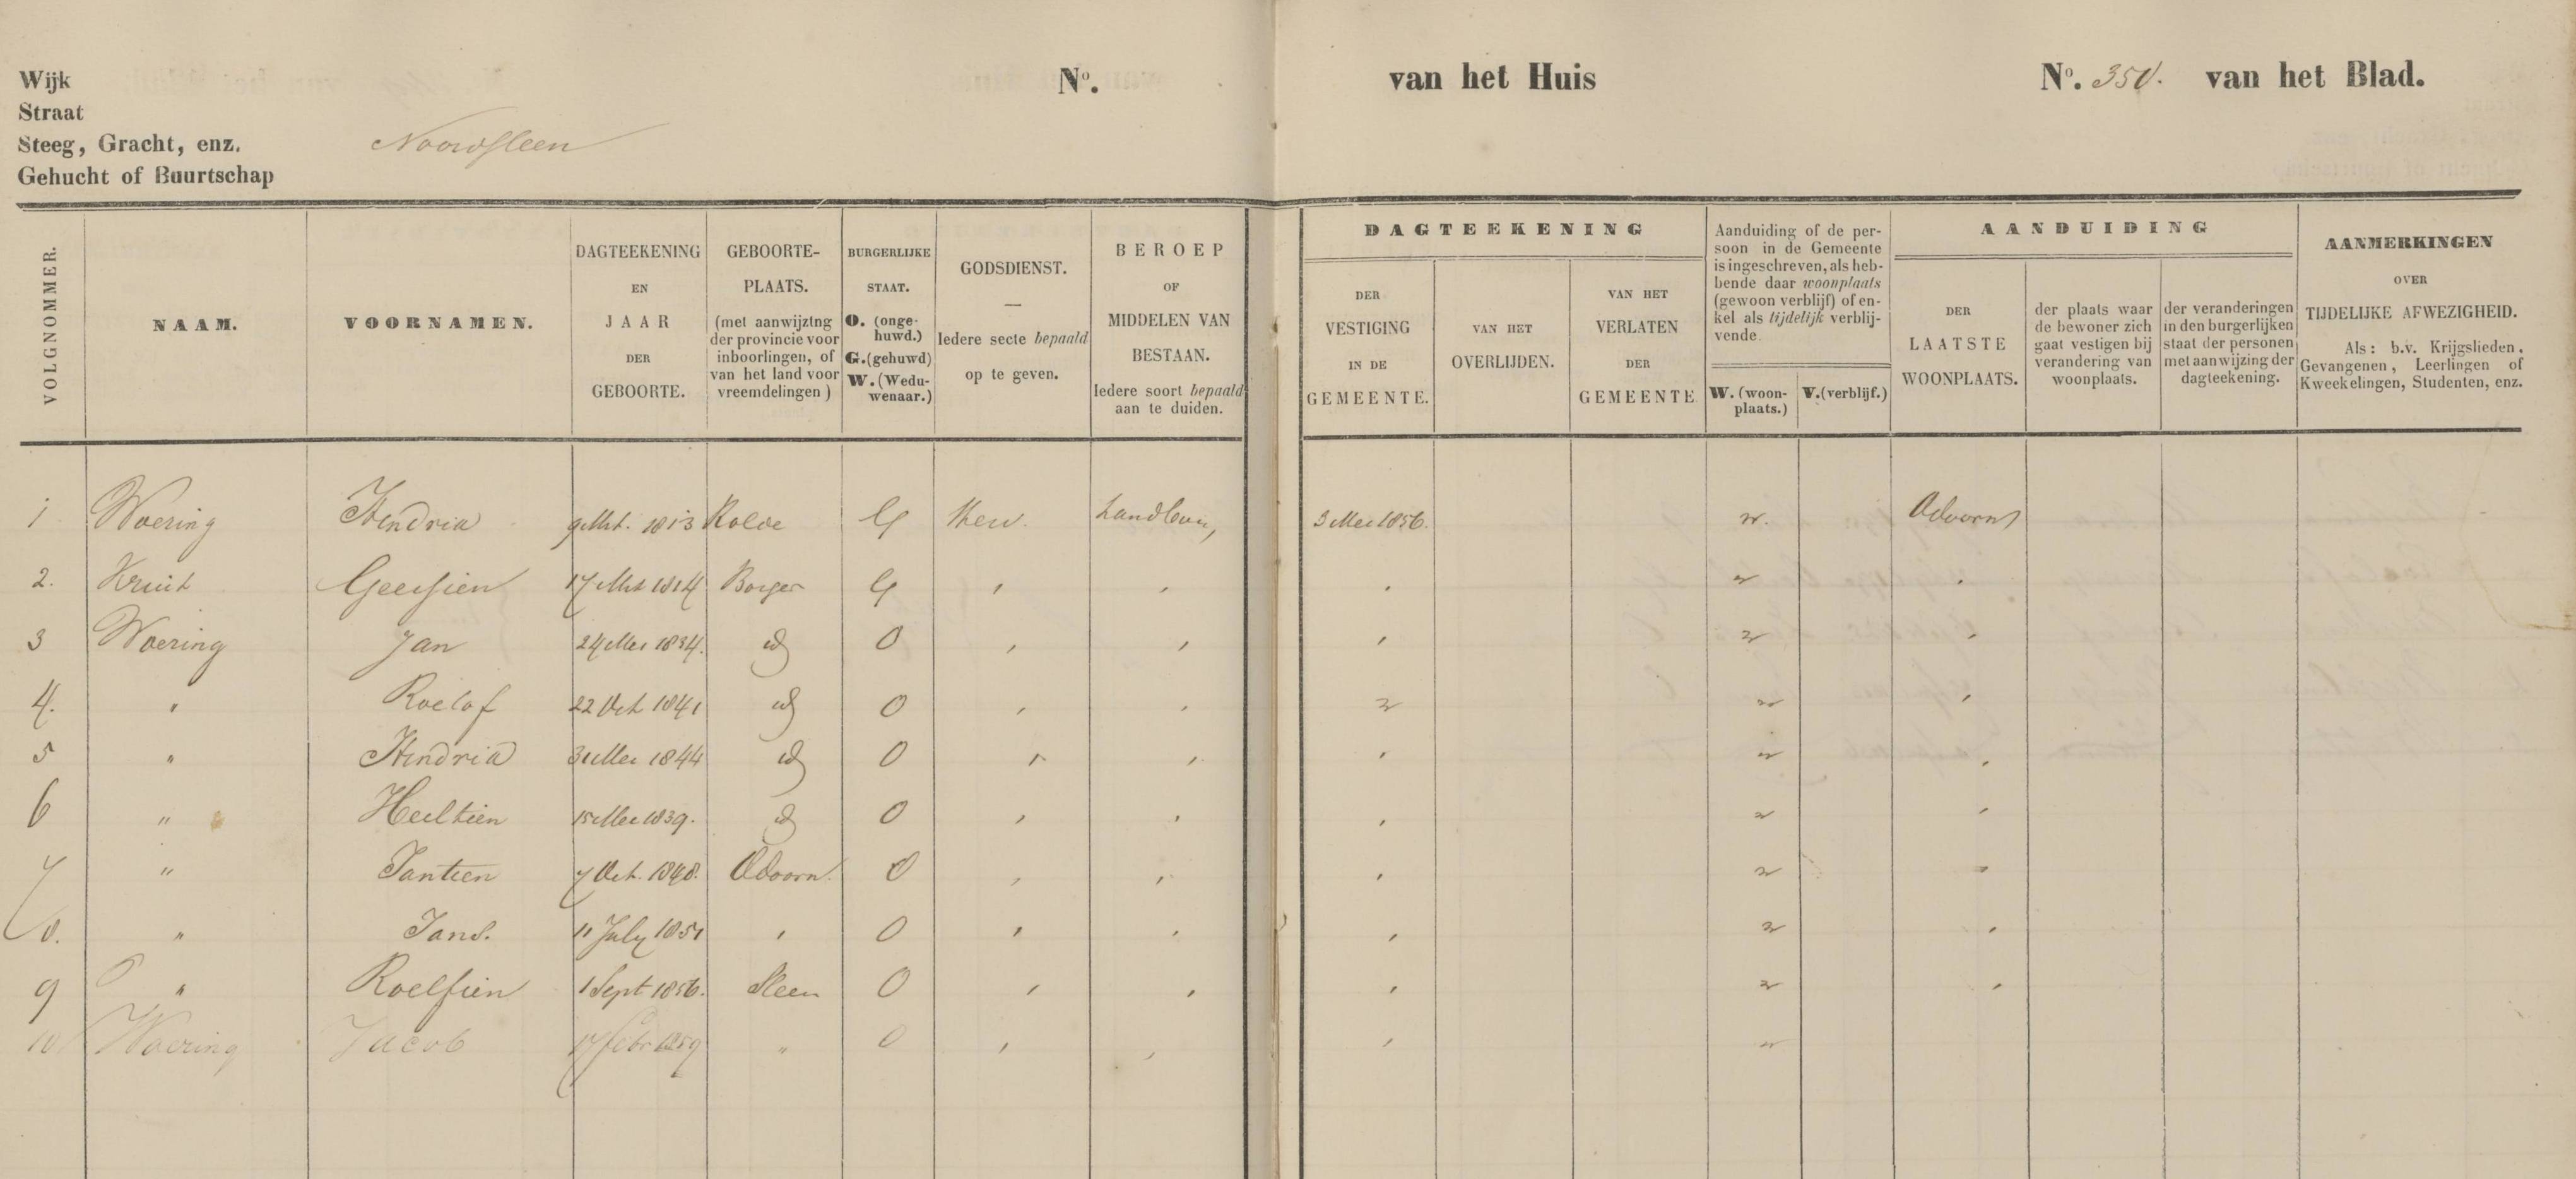 Wijk
Straat
Steeg, Gracht, enz. Noordsleen
Gehucht of Buurtschap
No. van het Huis No. 350. van het Blad.
VOLGNOMMER.
NAAM.
VOORNAMEN.
DAGTEEKENING EN JAAR DER GEBOORTE.
GEBOORTE-PLAATS. (met aanwijzing der provincie voor inboorlingen, of van het land voor vreemdelingen)
BURGERLIJKE STAAT. O. (ongehuwd.) G. (gehuwd) W. (Weduwenaar.)
GODSDIENST. — Iedere secte bepaald op te geven.
BEROEP OF MIDDELEN VAN BESTAAN. Iedere soort bepaald aan te duiden.
DAGTEEKENING
DER VESTIGING IN DE GEMEENTE.
VAN HET OVERLIJDEN.
VAN HET VERLATEN DER GEMEENTE
Aanduiding of de persoon in de Gemeente is ingeschreven, als hebbende daar woonplaats (gewoon verblijf) of enkel als tijdelijk verblijvende.
W. (woonplaats.) V. (verblijf.)
AANDUIDING
DER LAATSTE WOONPLAATS.
der plaats waar de bewoner zich gaat vestigen bij verandering van woonplaats.
der veranderingen in den burgerlijken staat der personen met aanwijzing der dagteekening.
AANMERKINGEN OVER TIJDELIJKE AFWEZIGHEID. Als: b.v. Krijgslieden, Gevangenen, Leerlingen of Kweekelingen, Studenten, enz.
1 Woering Hendrik 9 Mrt. 1813 Rolde G Herv. Landbouw, 3 Mei 1856. w. Odoorn
2. Kruit Geesien 17 Mrt 1814 Borger G , , , w ,
3 Woering Jan 24 Mei 1834. id O , , , w ,
4. " Roelof 22 Oct 1841 id O , , w ,
5 " Hendrik 31 Mei 1844 id O , , , w ,
6 " Heiltien 15 Mei 1839. id O , , , w ,
7 " Jantien 7 Oct. 1848. Odoorn. O , , , w ,
8. " 11 July 1851 , O , , , w ,
9 " Roelfien 1 Sept 1856. Sleen O , , , w ,
10 Woering Jacob 17 Febr 1859 " O , , , w